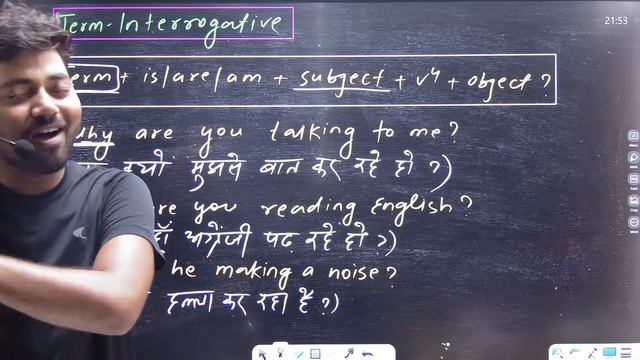 Term-Interrogative
Term + is/are/am + subject + v4 + object ?
why are you talking to me ?
क्यो मुझसे बात कर रहे हो ?)
are you reading English ?
अग्रेंजी पढ़ रहे हो ?)
he making a noise ?
हल्ला कर रहा है ?)
21:53